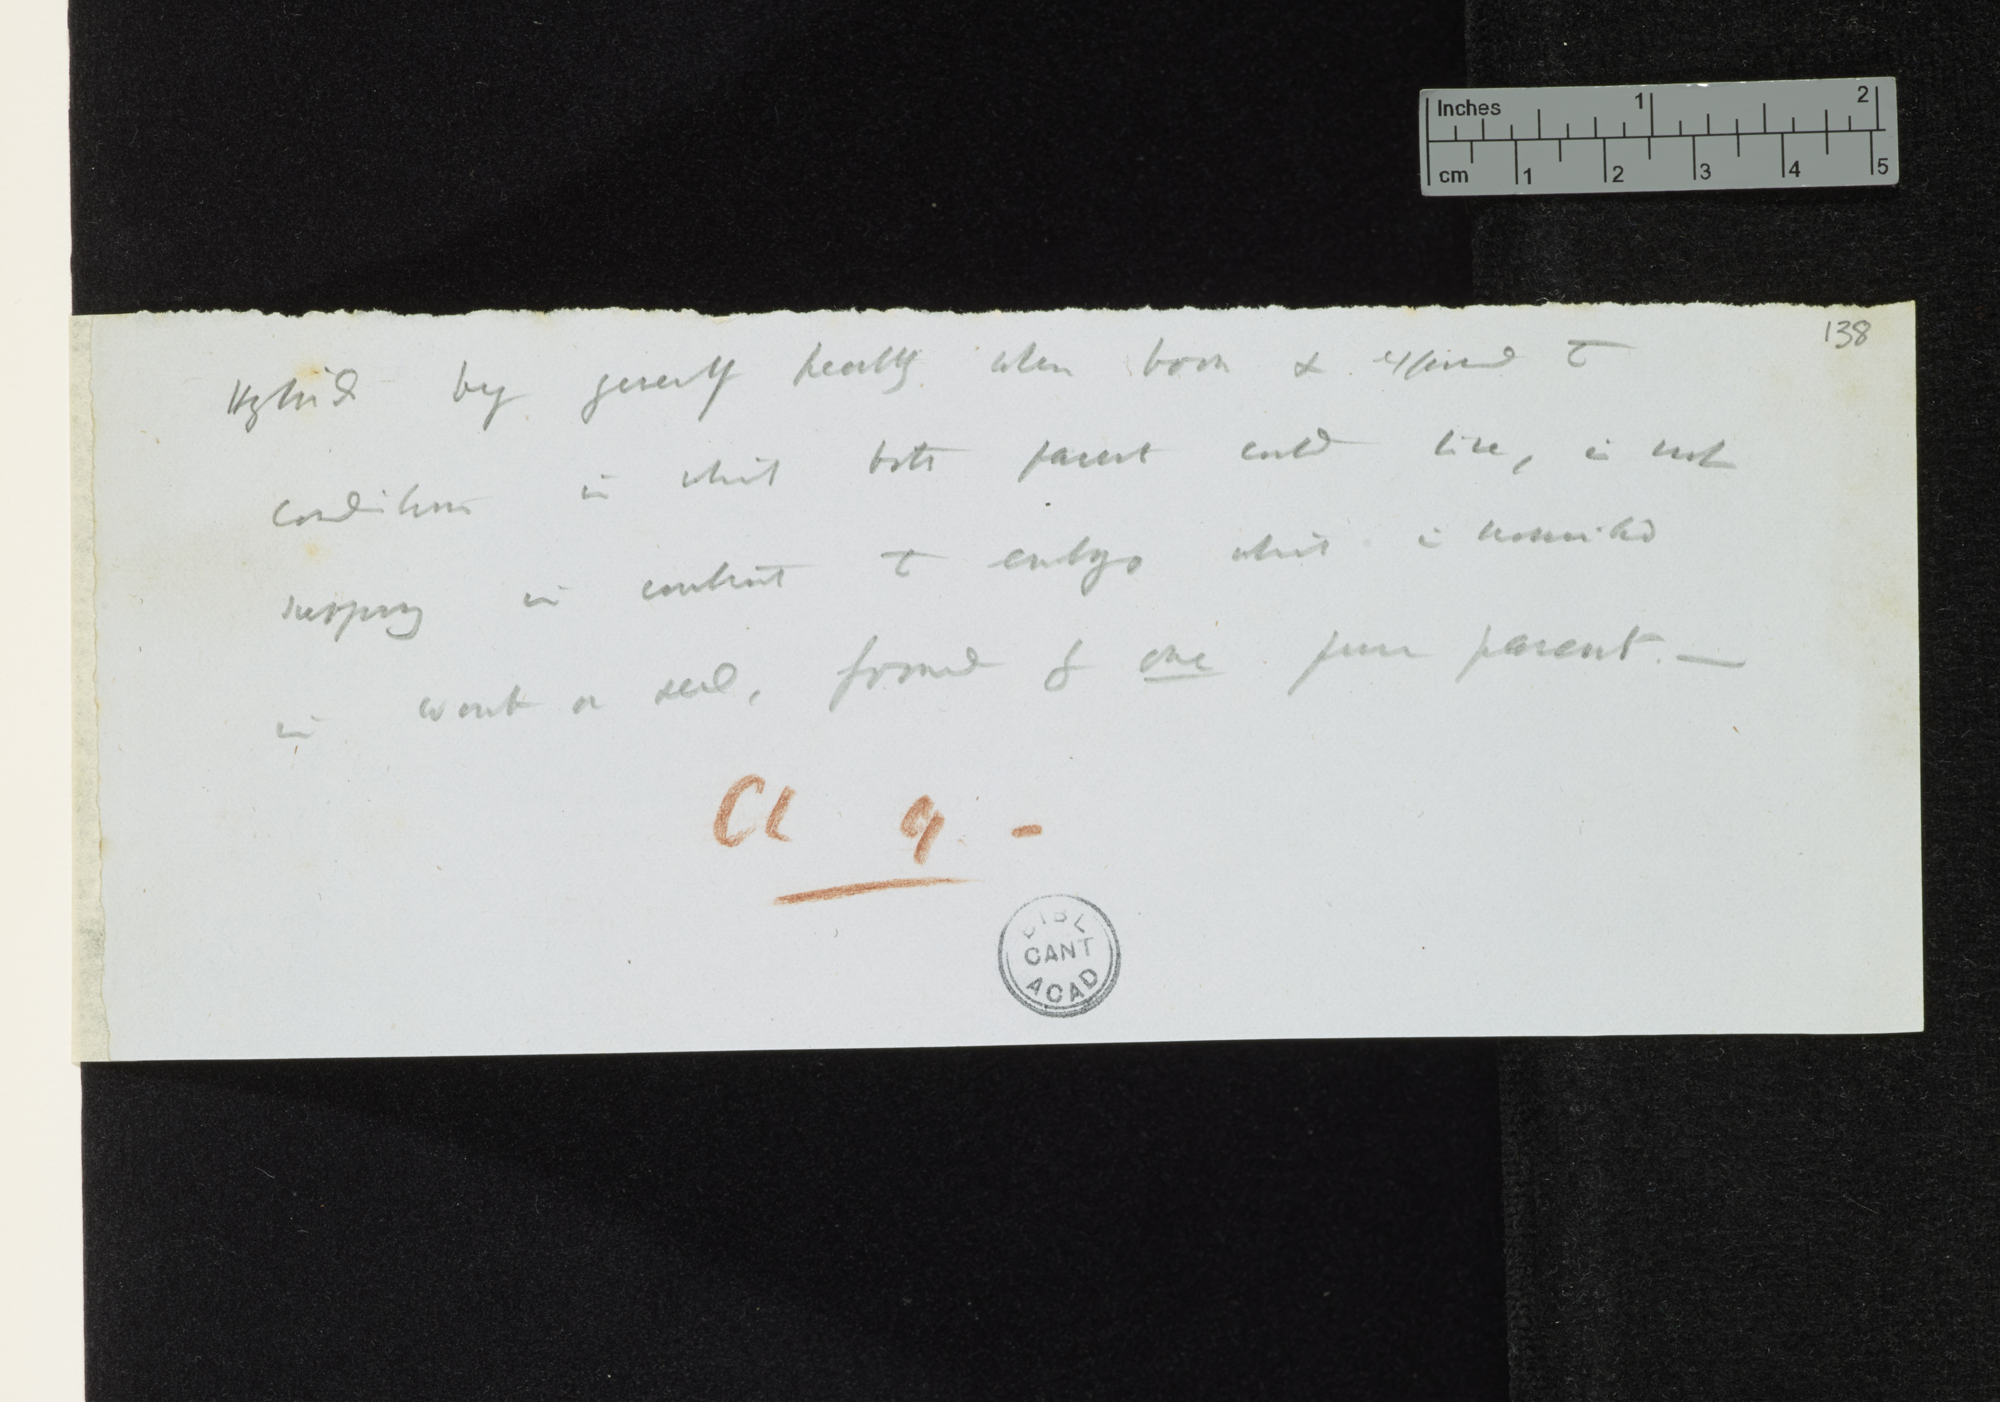 Inches 1 2
cm 1 2 3 4 5
138
Hybrid being generally healthy when born & exposed to
conditions in which both parent could live, is not
surprising in contrast to embryo which is nourished
in womb or seed, formed of one pure parent. —
Ch 9 -
BIBL
CANT
ACAD